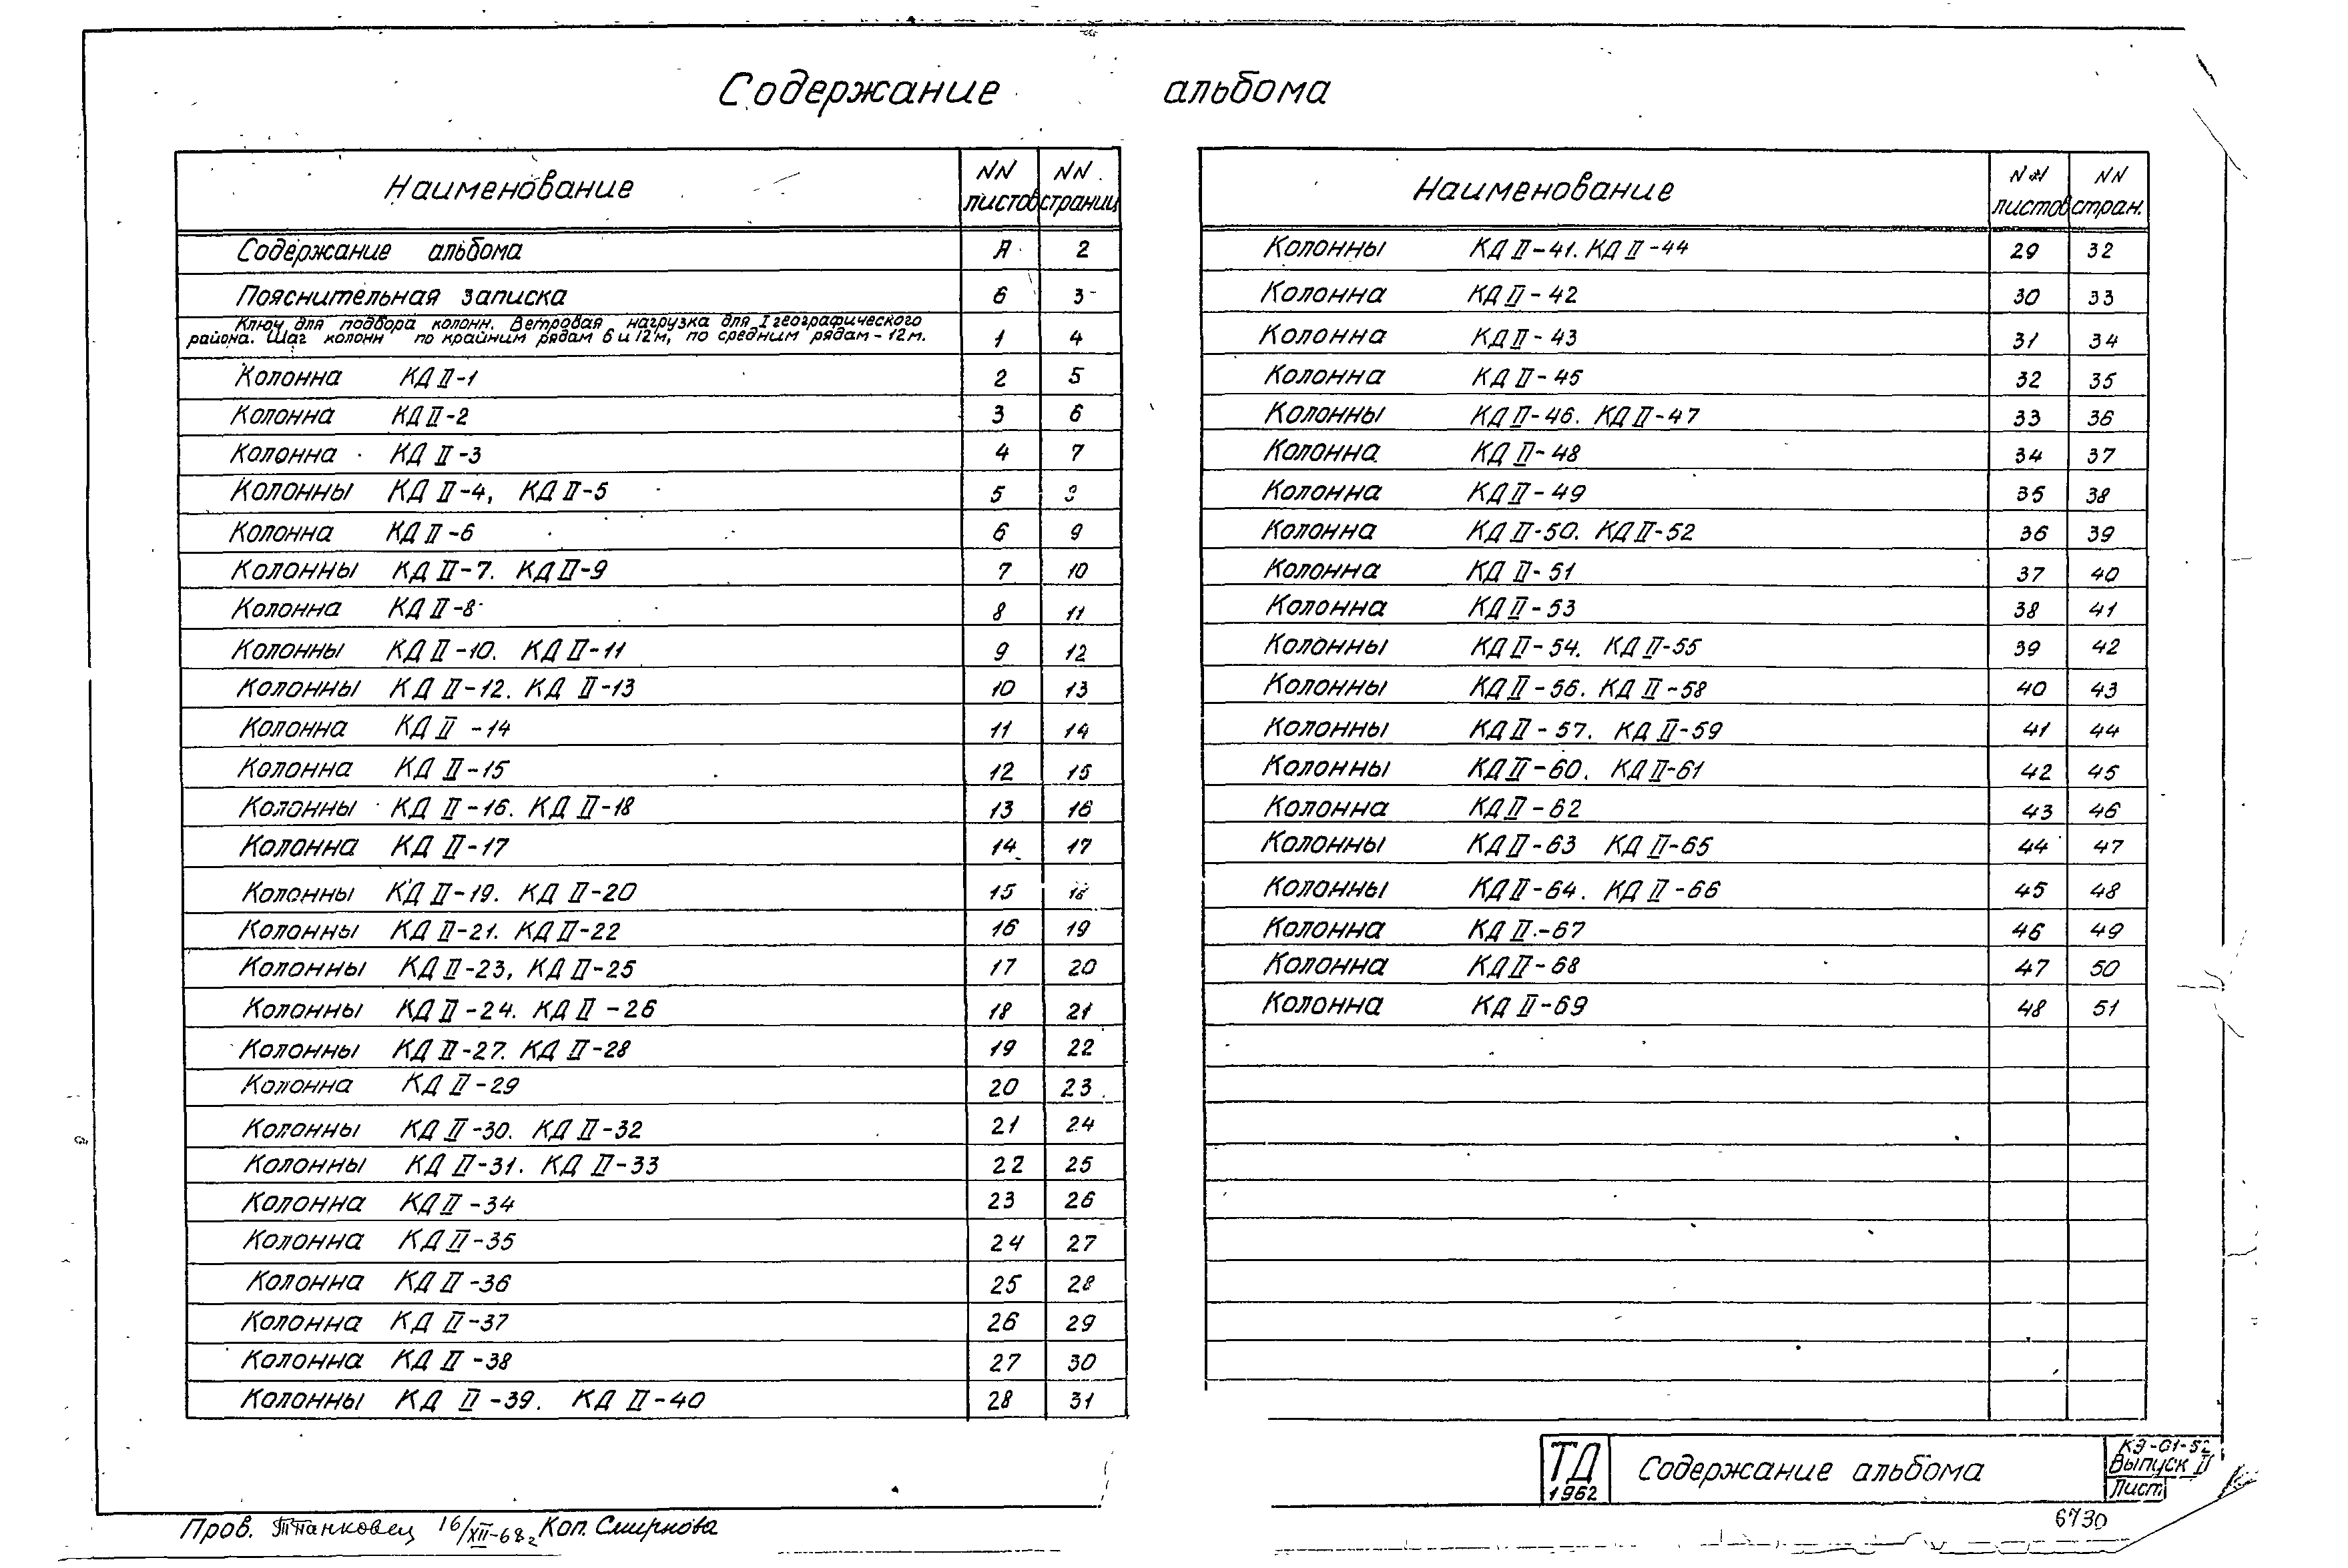 Содержание альбома
Наименование NN листов NN страниц
Содержание альбома А 2
Пояснительная записка Б 3
Ключ для подбора колонн. Ветровая нагрузка для I географического
района. Шаг колонн по крайним рядам 6 и 12м, по средним рядам - 12м. 1 4
Колонна КД II-1 2 5
Колонна КД II-2 3 6
Колонна КД II-3 4 7
Колонны КД II-4, КД II-5 5
Колонна КД II-6 6 9
Колонны КД II-7. КД II-9 7 10
Колонна КД II-8 8 11
Колонны КД II-10. КД II-11 9 12
Колонны КД II-12. КД II-13 10 13
Колонна КД II-14 11 14
Колонна КД II-15 12 15
Колонны КД II-16. КД II-18 13 16
Колонна КД II-17 14 17
Колонны КД II-19. КД II-20 15 18
Колонны КД II-21. КД II-22 16 19
Колонны КД II-23, КД II-25 17 20
Колонны КД II-24. КД II-26 18 21
Колонны КД II-27. КД II-28 19 22
Колонна КД II-29 20 23
Колонны КД II-30. КД II-32 21 24
Колонны КД II-31. КД II-33 22 25
Колонна КД II-34 23 26
Колонна КД II-35 24 27
Колонна КД II-36 25 28
Колонна КД II-37 26 29
Колонна КД II-38 27 30
Колонны КД II-39. КД II-40 28 31
Наименование NN листов NN стран.
Колонны КД II-41. КД II-44 29 32
Колонна КД II-42 30 33
Колонна КД II-43 31 34
Колонна КД II-45 32 35
Колонны КД II-46. КД II-47 33 36
Колонна КД II-48 34 37
Колонна КД II-49 35 38
Колонна КД II-50. КД II-52 36 39
Колонна КД II-51 37 40
Колонна КД II-53 38 41
Колонны КД II-54. КД II-55 39 42
Колонны КД II-56. КД II-58 40 43
Колонны КД II-57. КД II-59 41 44
Колонны КД II-60. КД II-61 42 45
Колонна КД II-62 43 46
Колонны КД II-63 КД II-65 44 47
Колонны КД II-64. КД II-66 45 48
Колонна КД II-67 46 49
Колонна КД II-68 47 50
Колонна КД II-69 48 51
ТД
1962
Содержание альбома
КЭ-01-52
Выпуск II
Лист
Пров. 16/XII-68г Коп. Смирнова
6730